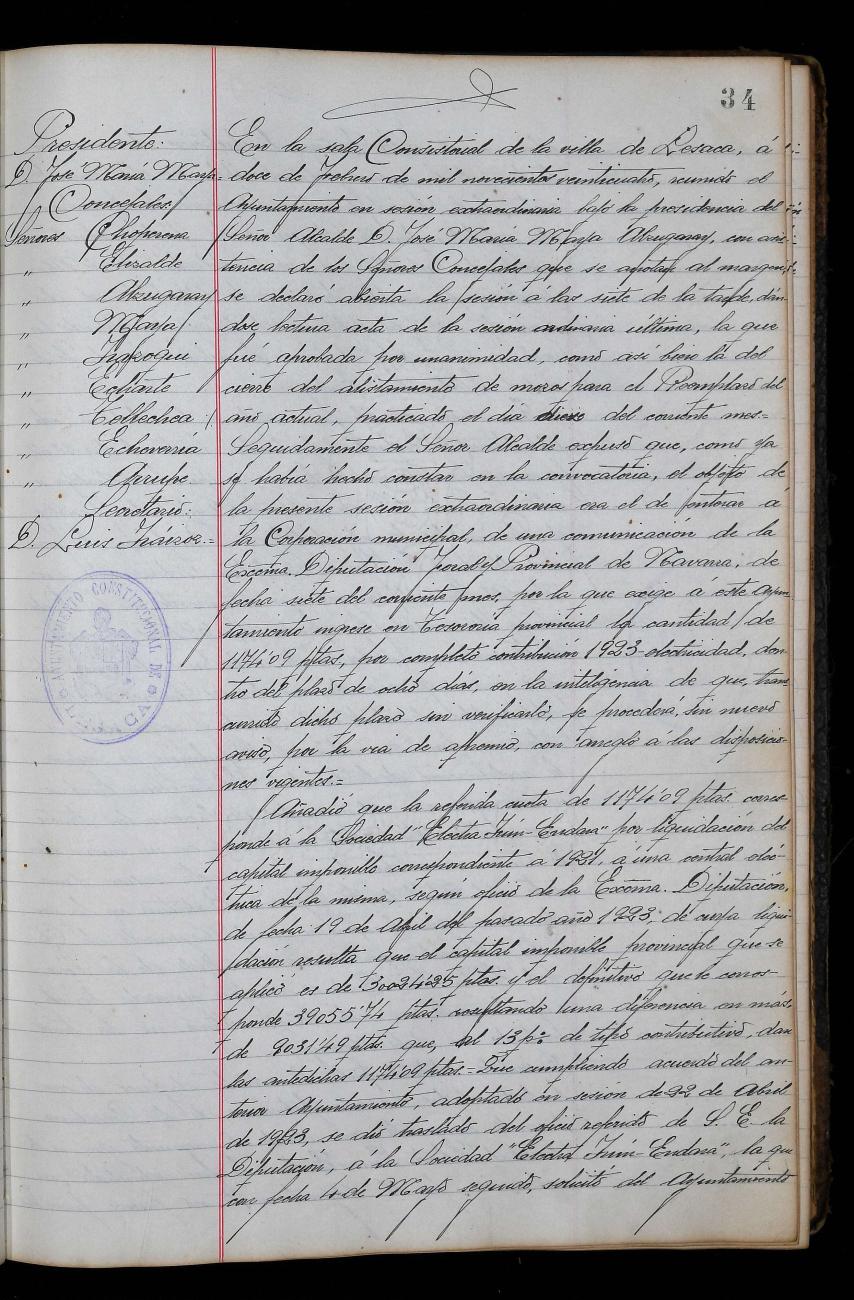 34
Presidente:
D. José María Marfa=
Concejales
Señores Choperena
" Elizalde
" Alzugaray
" Marfa
" Irazoqui
" Echarte
" Tellechea
" Echeverría
" Agrupe
Secretario:
D. Luis Iráizoz.=
AYUNTAMIENTO CONSTITUCIONAL DE
En la sala Consistorial de la villa de Lesaca, á
doce de Febrero de mil novecientos veinticuatro, reunido el
Ayuntamiento en sesión extraordinaria bajo la presidencia del
Señor Alcalde D. José María Marfa Alzugaray, con asis-
tencia de los Señores Concejales que se anotan al margen,
se declaró abierta la sesión á las siete de la tarde, dán-
dose lectura acta de la sesión ordinaria última, la que
fué aprobada por unanimidad, como así bien la del
cierre del alistamiento de mozos para el Reemplazo del
año actual, practicado el día diez del corriente mes.=
Seguidamente el Señor Alcalde expuso que, como ya
se había hecho constar en la convocatoria, el objeto de
la presente sesión extraordinaria era el de enterar á
la Corporación municipal, de una comunicación de la
Excma. Diputación Foral y Provincial de Navarra, de
fecha siete del corriente mes, por la que exige á este Ayun-
tamiento ingrese en Tesorería provincial la cantidad de
1174'09 ptas, por completo contribución 1923-electricidad, den-
tro del plazo de ocho días, en la inteligencia de que, trans-
currido dicho plazo sin verificarlo, se procederá, sin nuevo
aviso, por la via de apremio, con arreglo á las disposicio-
nes vigentes.=
Añadió que la referida cuota de 1174'09 ptas. corres-
ponde á la Sociedad "Electra Irún-Endara" por liquidación del
capital imponible correspondiente a 1921, á una central eléc-
trica de la misma, según oficio de la Excma. Diputación,
de fecha 19 de Abril del pasado año 1923, de cuya liqui-
dación resulta que el capital imponible provincial que se
aplicó es de 30024'25 ptas. y el definitivo que le corres-
ponde 39055'74 ptas. resultando una diferencia en más,
de 9031'49 ptas. que, al 13 p% de tipo contributivo, dan
las antedichas 1174'09 ptas.=Que cumpliendo acuerdo del an-
terior Ayuntamiento, adoptado en sesión de 22 de Abril
de 1923, se dió traslado del oficio referido de S. E. la
Diputación, á la Sociedad "Electra Irún-Endara", la que
con fecha 4 de Mayo seguido, solicitó del Ayuntamiento